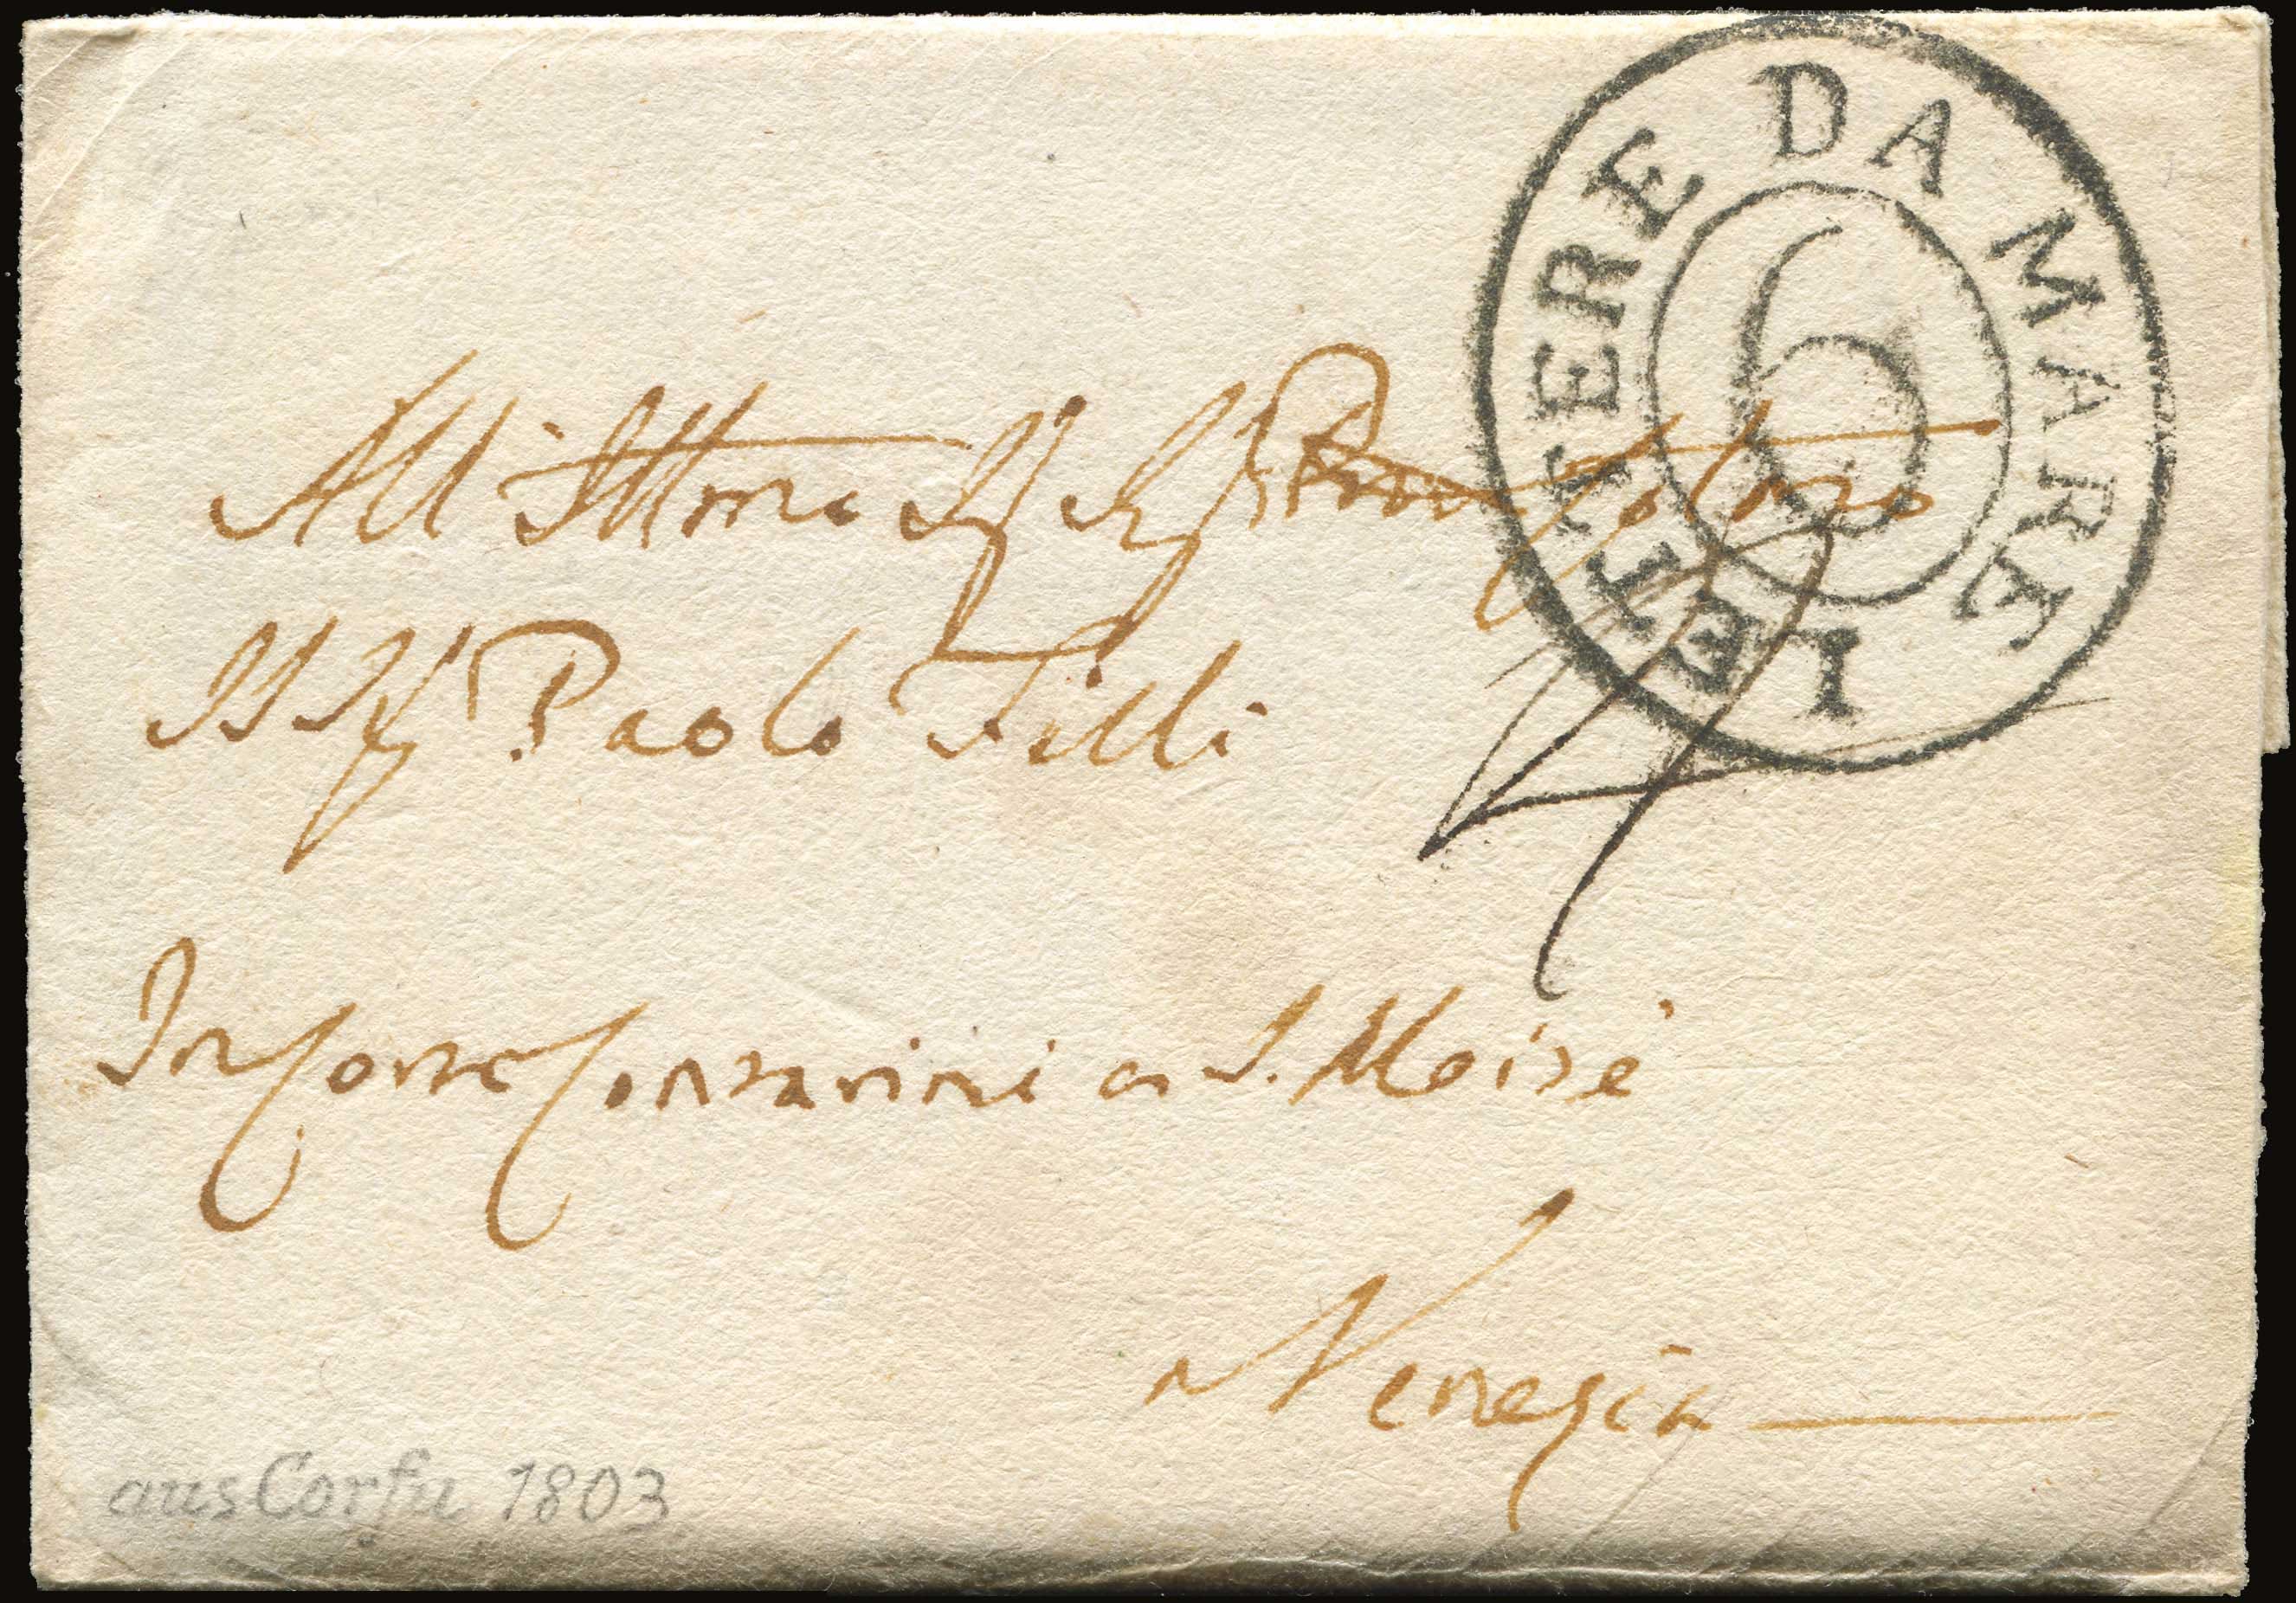 LETTERE DA MARE
6
All' Illmo Sig Sig Pron Colmo
Il Sig Paolo Filli
In Corte Contarini a S. Moisè
Venezia
aus Corfu 1803